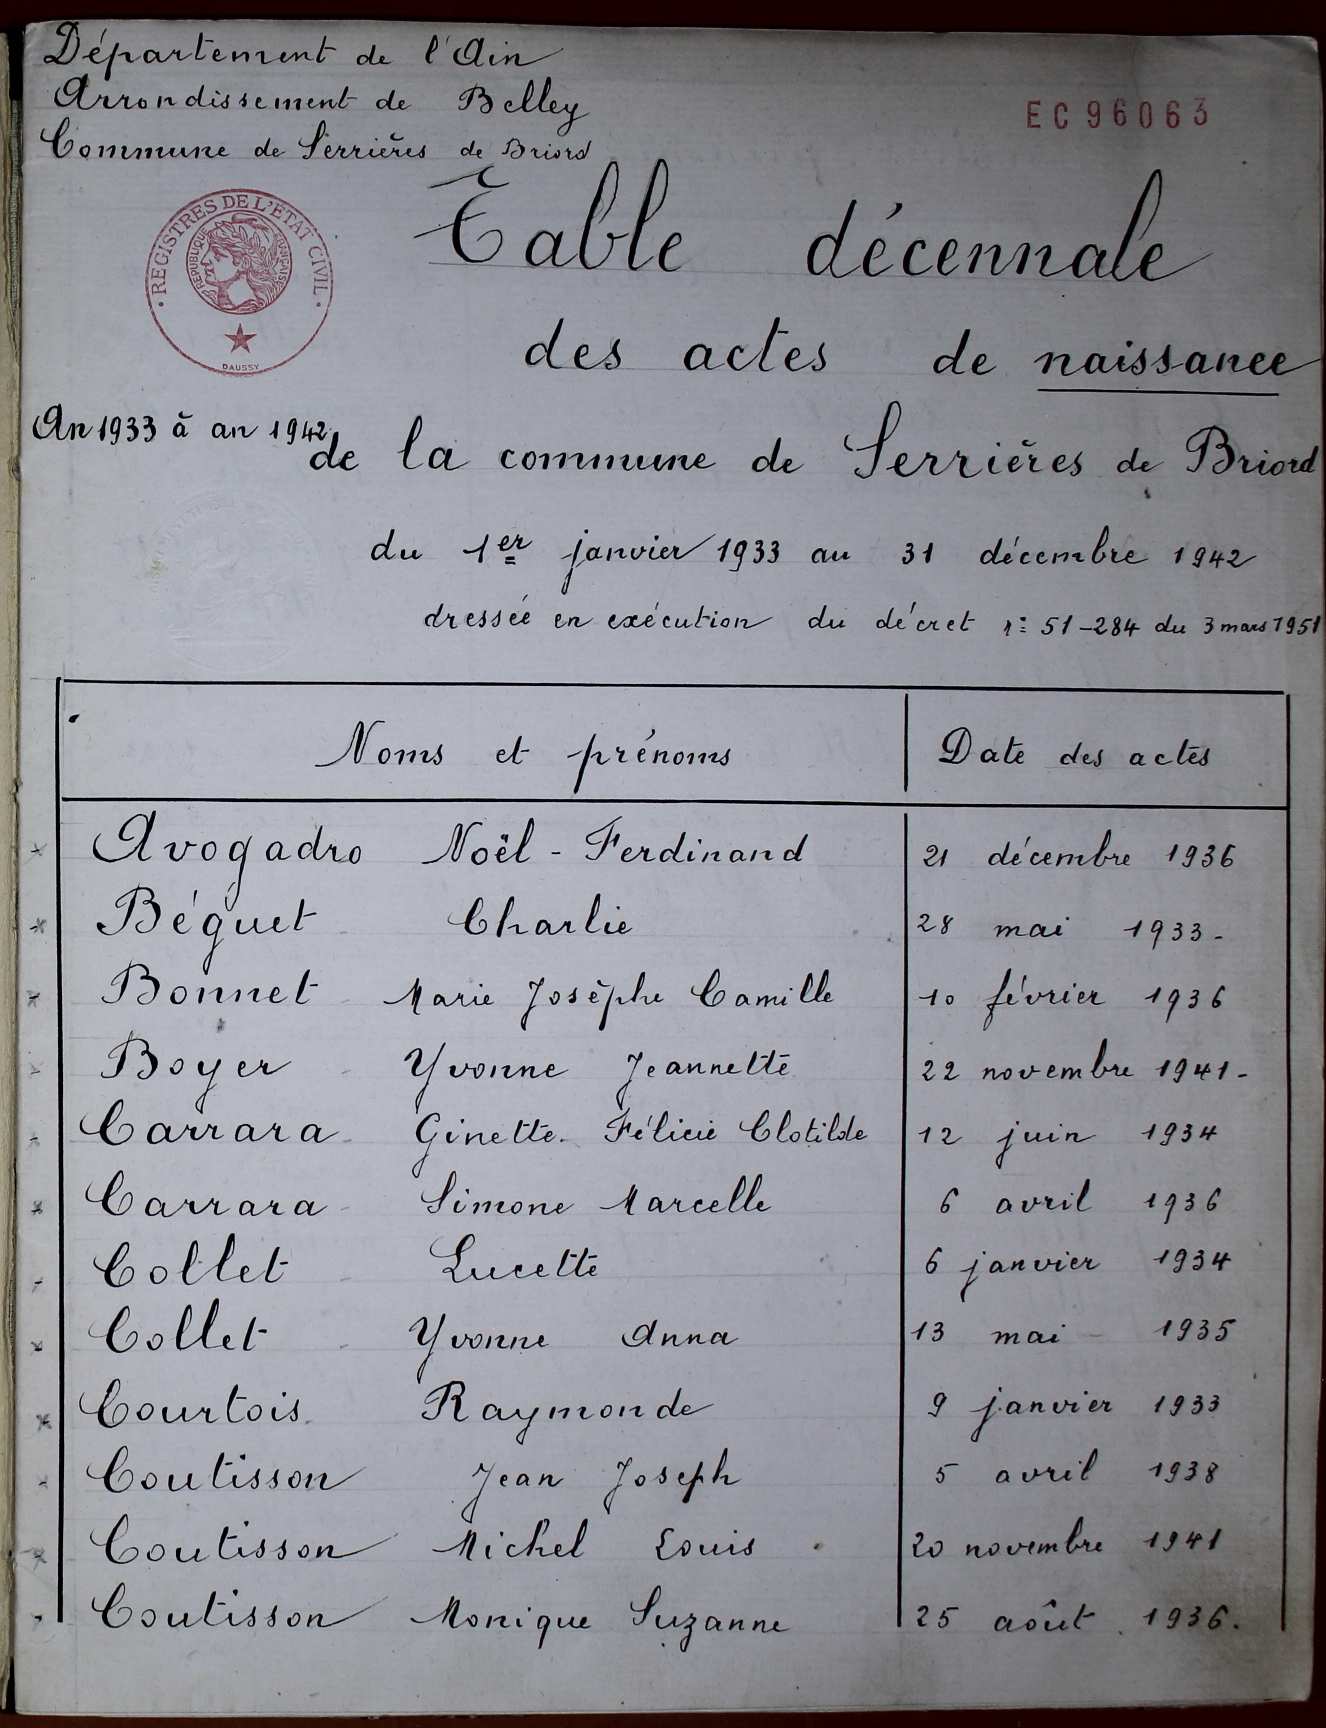 Département de l'Ain
Arrondissement de Belley
Commune de Serrières de Briord
EC96063
REGISTRES DE L'ÉTAT CIVIL
RÉPUBLIQUE FRANÇAISE
DAUSSY
Table décennale
des actes de naissance
An 1933 à an 1942
de la commune de Serrières de Briord
du 1er janvier 1933 au 31 décembre 1942
dressée en exécution du décret n° 51-284 du 3 mars 1951
Noms et prénoms Date des actes
Avogadro Noël - Ferdinand 21 décembre 1936
Béguet Charlie 28 mai 1933 -
Bonnet Marie Josèphe Camille 10 février 1936
Boyer Yvonne Jeannette 22 novembre 1941 -
Carrara Ginette Félicie Clotilde 12 juin 1934
Carrara Simone Marcelle 6 avril 1936
Collet Lucette 6 janvier 1934
Collet Yvonne Anna 13 mai 1935
Courtois Raymonde 9 janvier 1933
Coutisson Jean Joseph 5 avril 1938
Coutisson Michel Louis 20 novembre 1941
Coutisson Monique Suzanne 25 août 1936.